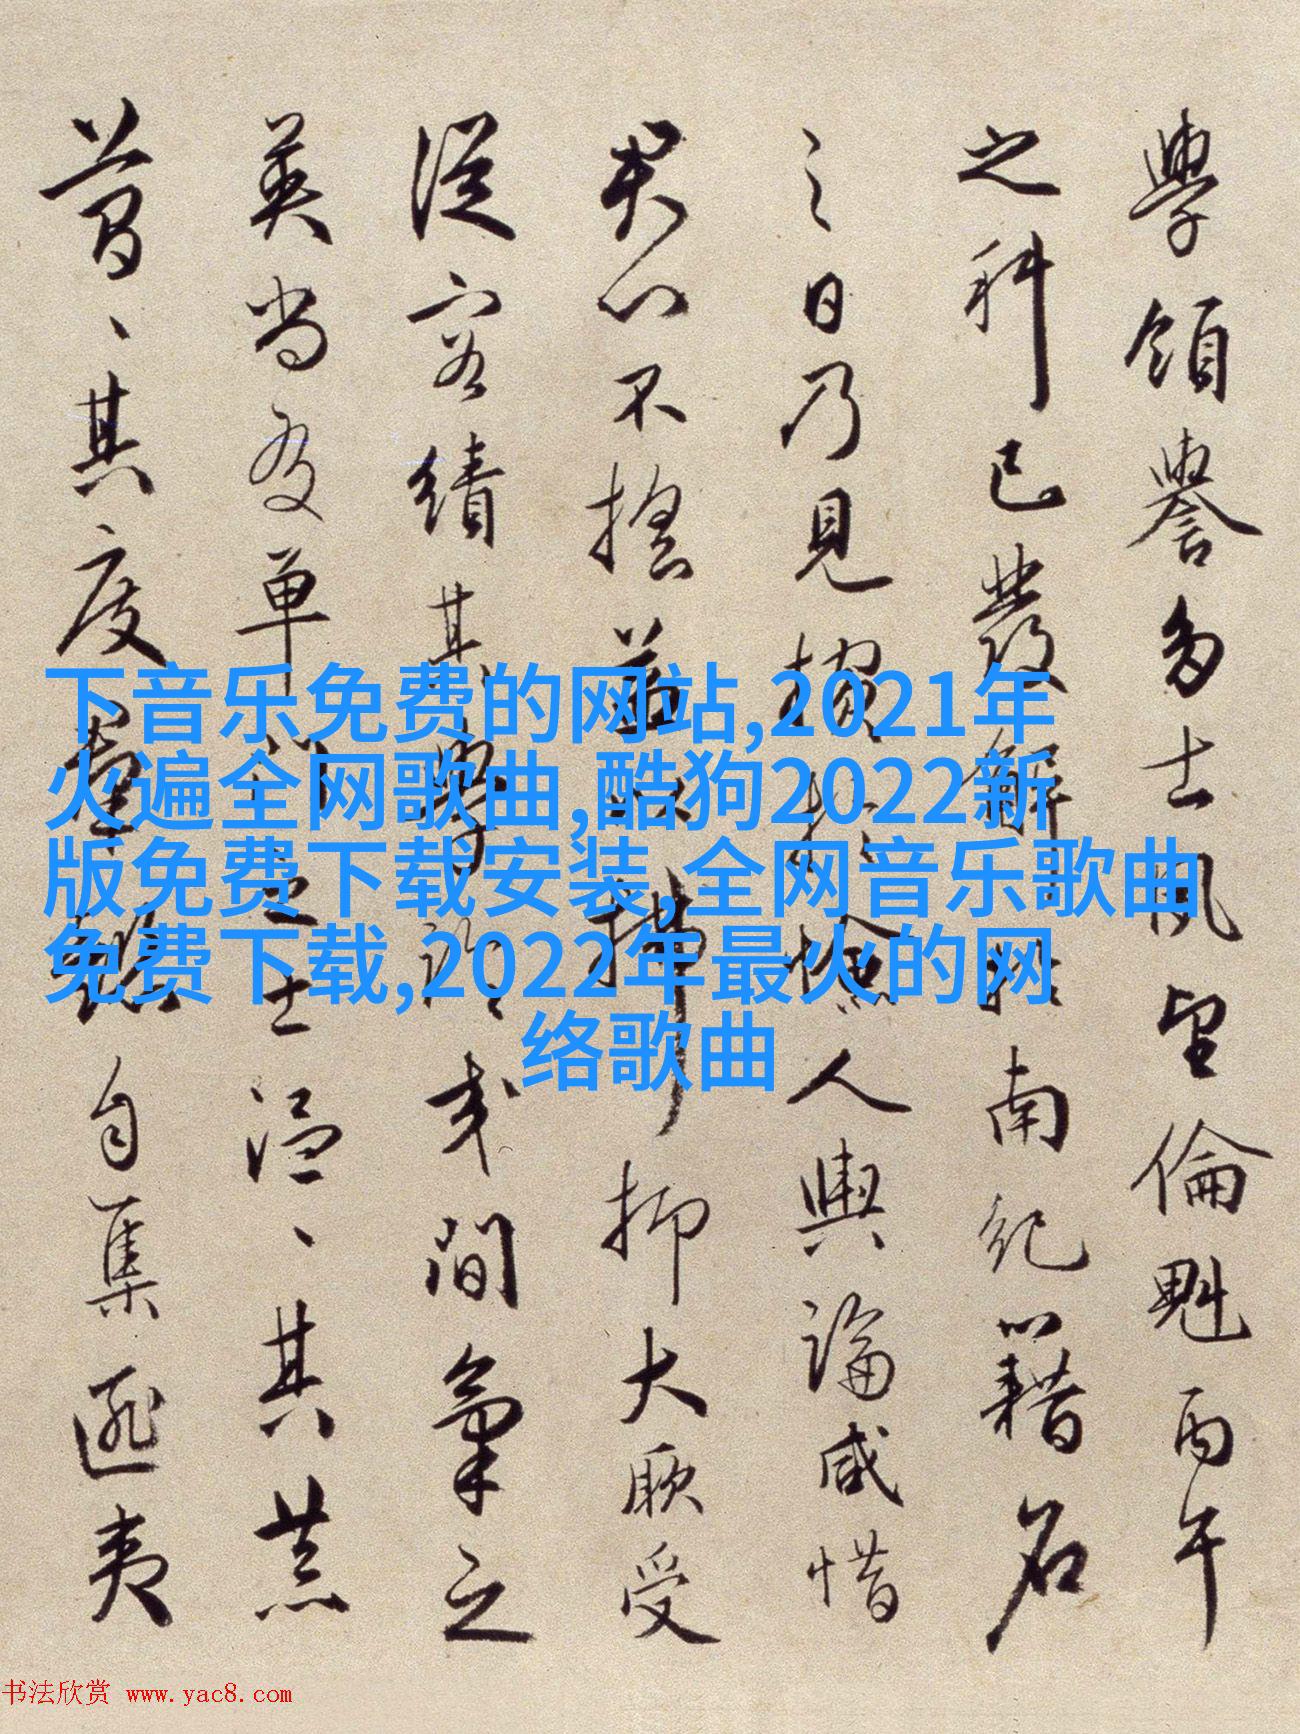 學領譽多士風望倫魁丙午
之科已發解於南紀籍名
之日乃見
人輿論咸惜
君心不搖益
抑大耐受
從容績其學
或間氣之
英尚友單
士温、其恭
昔、其度
自集遜夷
下音乐免费的网站,2021年
火遍全网歌曲,酷狗2022新
版免费下载安装,全网音乐歌曲
免费下载,2022年最火的网
络歌曲
书法欣赏 www.yac8.com